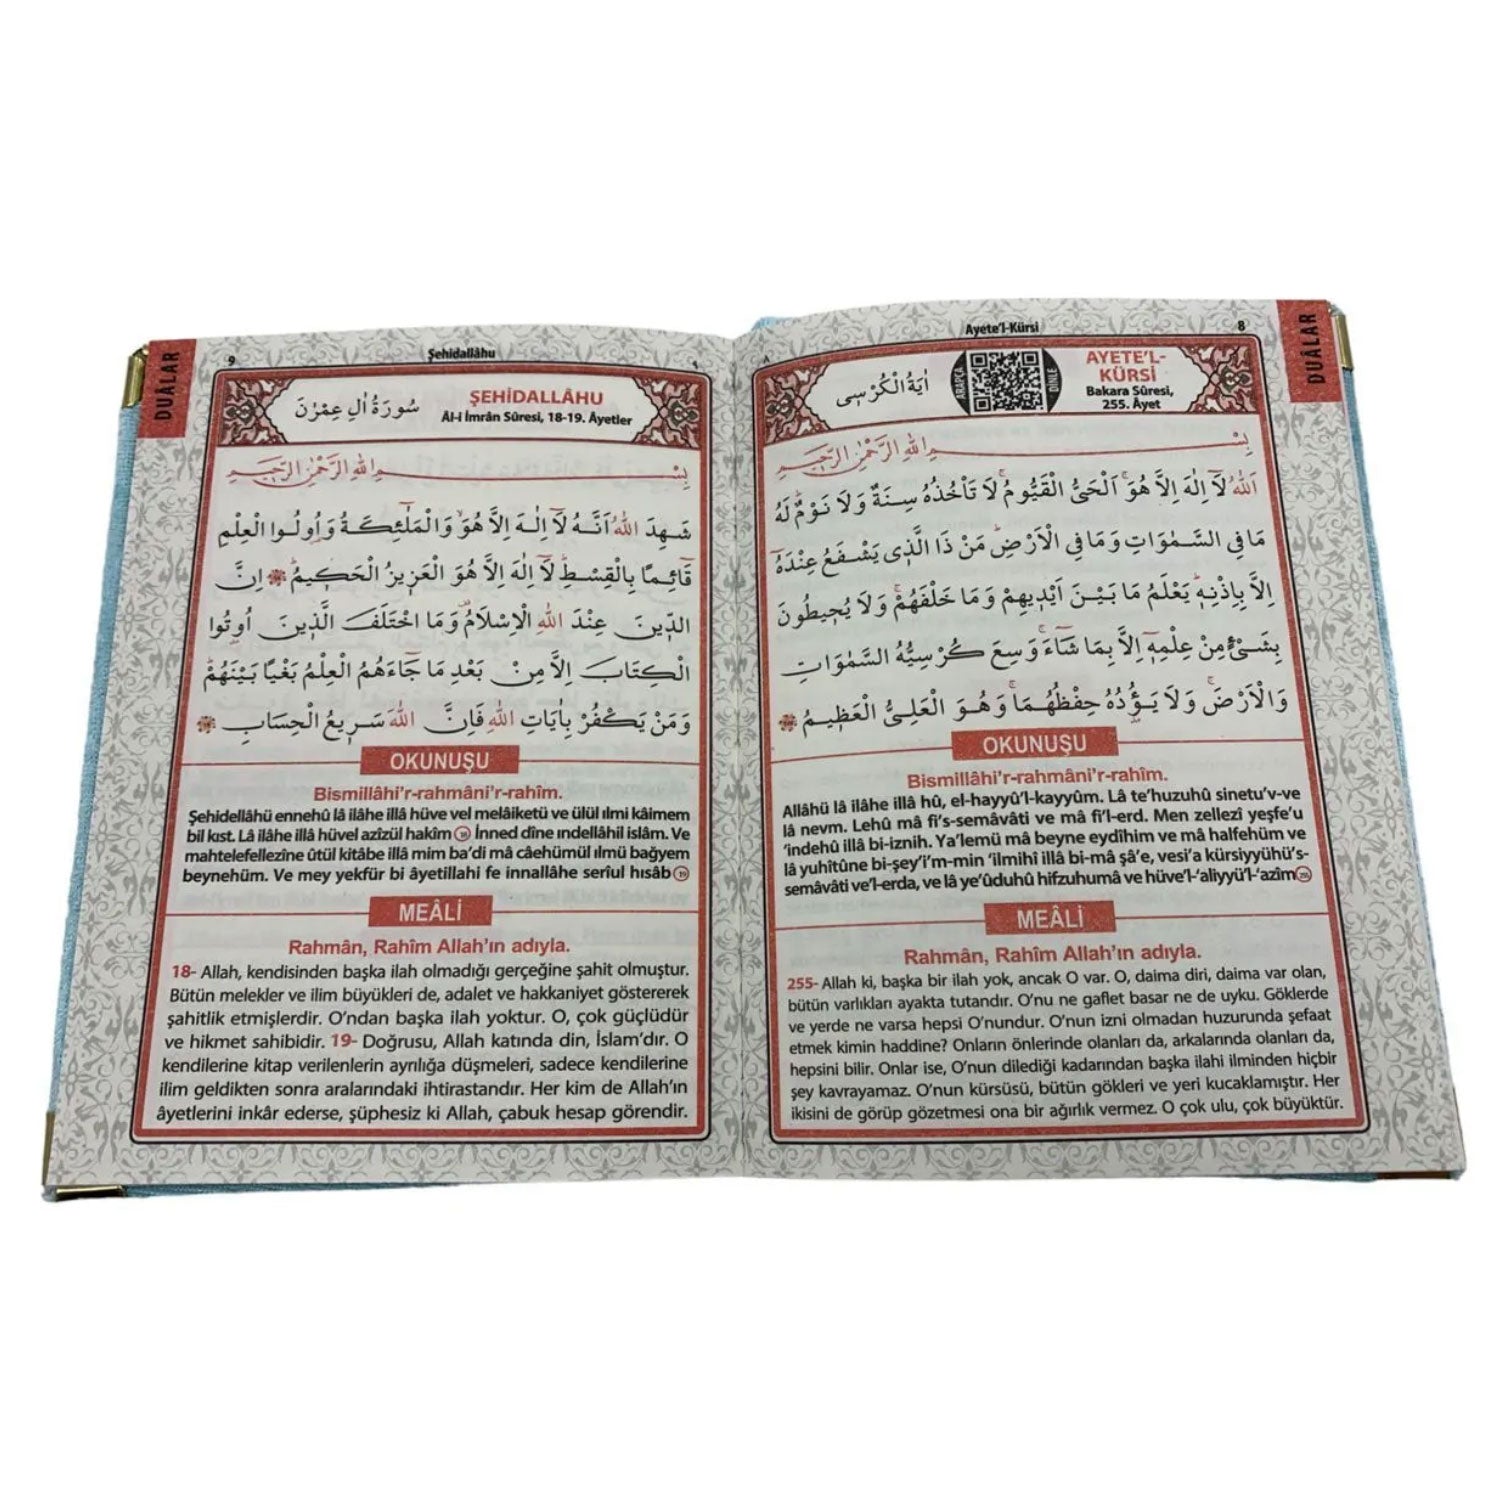 DUÂLAR
8
Ayete'l-Kürsi
٨
AYETE'L-
KÜRSİ
Bakara Sûresi,
255. Âyet
ARAPÇA
DİNLE
اٰيَةُ الْكُرْسِى
بِسْمِ اللّٰهِ الرَّحْمٰنِ الرَّحِيمِ
اَللّٰهُ لَٓا اِلٰهَ اِلَّا هُوَۚ اَلْحَىُّ الْقَيُّومُۚ لَا تَأْخُذُهُ سِنَةٌ وَلَا نَوْمٌۜ لَهُ
مَا فِى السَّمٰوَاتِ وَمَا فِى الْاَرْضِۜ مَنْ ذَا الَّذٖى يَشْفَعُ عِنْدَهُٓ
اِلَّا بِاِذْنِهٖۜ يَعْلَمُ مَا بَيْنَ اَيْدٖيهِمْ وَمَا خَلْفَهُمْۚ وَلَا يُحٖيطُونَ
بِشَىْءٍ مِنْ عِلْمِهٖٓ اِلَّا بِمَا شَٓاءَۚ وَسِعَ كُرْسِيُّهُ السَّمٰوَاتِ
وَالْاَرْضَۚ وَلَا يَؤُ۫دُهُ حِفْظُهُمَاۚ وَهُوَ الْعَلِىُّ الْعَظٖيمُ
OKUNUŞU
Bismillâhi'r-rahmâni'r-rahîm.
Allâhü lâ ilâhe illâ hû, el-hayyû'l-kayyûm. Lâ te'huzuhû sinetu'v-ve
lâ nevm. Lehû mâ fi's-semâvâti ve mâ fi'l-erd. Men zellezî yeşfe'u
'indehû illâ bi-iznih. Ya'lemü mâ beyne eydîhim ve mâ halfehüm ve
lâ yuhîtûne bi-şey'i'm-min 'ilmihî illâ bi-mâ şâ'e, vesi'a kürsiyyühü's-
semâvâti ve'l-erda, ve lâ ye'ûduhû hifzuhumâ ve hüve'l-'aliyyü'l-'azîm 255
MEÂLİ
Rahmân, Rahîm Allah'ın adıyla.
255- Allah ki, başka bir ilah yok, ancak O var. O, daima diri, daima var olan,
bütün varlıkları ayakta tutandır. O'nu ne gaflet basar ne de uyku. Göklerde
ve yerde ne varsa hepsi O'nundur. O'nun izni olmadan huzurunda şefaat
etmek kimin haddine? Onların önlerinde olanları da, arkalarında olanları da,
hepsini bilir. Onlar ise, O'nun dilediği kadarından başka ilahi ilminden hiçbir
şey kavrayamaz. O'nun kürsüsü, bütün gökleri ve yeri kucaklamıştır. Her
ikisini de görüp gözetmesi ona bir ağırlık vermez. O çok ulu, çok büyüktür.
DUÂLAR
9
Şehidallâhu
٩
ŞEHİDALLÂHU
Âl-i İmrân Sûresi, 18-19. Âyetler
سُورَةُ اٰلِ عِمْرٰنَ
بِسْمِ اللّٰهِ الرَّحْمٰنِ الرَّحِيمِ
شَهِدَ اللّٰهُ اَنَّهُ لَٓا اِلٰهَ اِلَّا هُوَۙ وَالْمَلٰٓئِكَةُ وَاُو۬لُوا الْعِلْمِ
قَٓائِمًا بِالْقِسْطِۜ لَٓا اِلٰهَ اِلَّا هُوَ الْعَزٖيزُ الْحَكٖيمُۜ اِنَّ
الدّٖينَ عِنْدَ اللّٰهِ الْاِسْلَامُ۠ وَمَا اخْتَلَفَ الَّذٖينَ اُو۫تُوا
الْكِتَابَ اِلَّا مِنْ بَعْدِ مَا جَٓاءَهُمُ الْعِلْمُ بَغْيًا بَيْنَهُمْۜ
وَمَنْ يَكْفُرْ بِاٰيَاتِ اللّٰهِ فَاِنَّ اللّٰهَ سَرٖيعُ الْحِسَابِ
OKUNUŞU
Bismillâhi'r-rahmâni'r-rahîm.
Şehidellâhü ennehû lâ ilâhe illâ hüve vel melâiketü ve ülül ılmi kâimem
bil kıst. Lâ ilâhe illâ hüvel azîzül hakîm 18 İnned dîne ındellâhil islâm. Ve
mahtelefellezîne ûtül kitâbe illâ mim ba'di mâ câehümül ılmü bağyem
beynehüm. Ve mey yekfür bi âyetillahi fe innallâhe serîul hısâb 19
MEÂLİ
Rahmân, Rahîm Allah'ın adıyla.
18- Allah, kendisinden başka ilah olmadığı gerçeğine şahit olmuştur.
Bütün melekler ve ilim büyükleri de, adalet ve hakkaniyet göstererek
şahitlik etmişlerdir. O'ndan başka ilah yoktur. O, çok güçlüdür
ve hikmet sahibidir. 19- Doğrusu, Allah katında din, İslam'dır. O
kendilerine kitap verilenlerin ayrılığa düşmeleri, sadece kendilerine
ilim geldikten sonra aralarındaki ihtirastandır. Her kim de Allah'ın
âyetlerini inkâr ederse, şüphesiz ki Allah, çabuk hesap görendir.